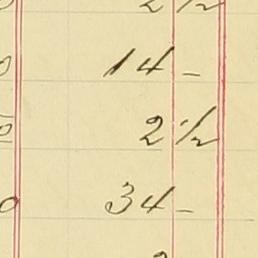 2 ½
14 –
2 ½
34 –